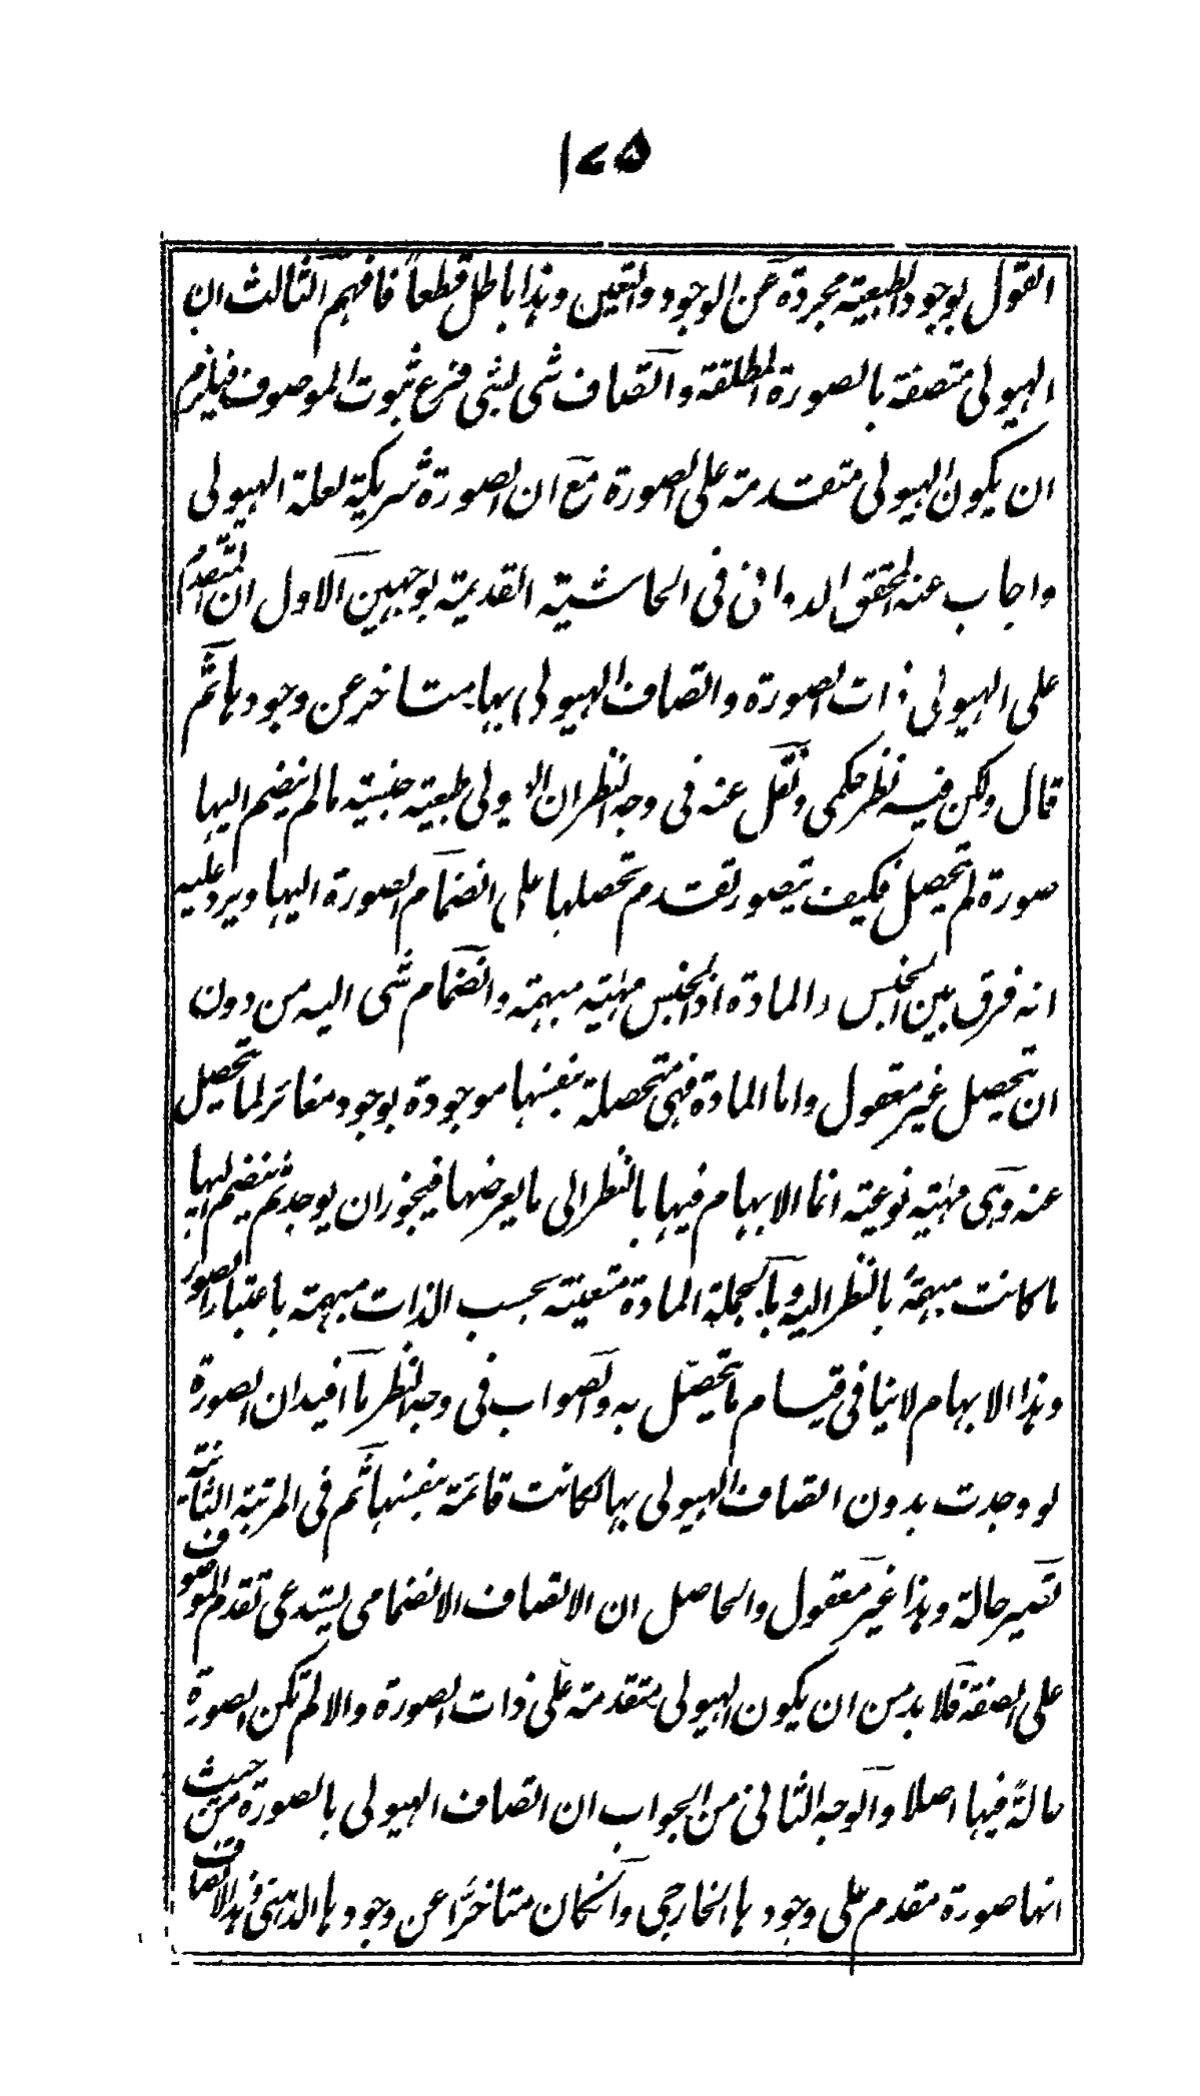 ١٧٥
القول بوجود الطبيعة مجردة عن الوجود والتعين وهذا باطل قطعاً فافهم الثالث ان
الهيولى متصفة بالصورة المطلقة واتصاف شى لشى فرع ثبوت الموصوف فيلزم
ان يكون الهيولى متقدمة على الصورة مع ان الصورة شريكة لعلة الهيولى
واجاب عنه المحقق الدوانى فى الحاشية القديمة بوجهين الاول ان المتقدم
على الهيولى ذات الصورة واتصاف الهيولى بها متاخر عن وجودها ثم
قال ولكن فيه نظر حكمى ونقل عنه فى وجه النظر ان الهيولى طبيعة جنسية مالم ينضم اليها
صورة لم تحصل فكيف يتصور تقدم تحصلها على انضمام الصورة اليها ويرد عليه
انه فرق بين الجنس والمادة اذ الجنس مهية مبهمة وانضمام شى اليه من دون
ان تحصيل غير معقول واما المادة فهى متحصلة بنفسها موجودة بوجود مغائر لما تحصيل
عنه وهى مهية نوعية انما الابهام فيها بالنظر الى ما يعرضها فيجوز ان يوجد ثم ينضم اليها
ما كانت مبهمة بالنظر اليه وبالجملة المادة متعينة بحسب الذات مبهمة باعتبار الصور
وهذا الابهام لا ينافى قيام ما تحصل به والصواب فى وجه النظر ما افيد ان الصورة
لو وجدت بدون اتصاف الهيولى بها لكانت قائمة بنفسها ثم فى المرتبة الثانية
تصير حالة وهذا غير معقول والحاصل ان الاتصاف الانضمامى يستدعى تقدم الموصوف
على الصفة فلا بد من ان يكون الهيولى متقدمة على ذات الصورة والا لم تكن الصورة
حالة فيها اصلا والوجه الثانى من الجواب ان اتصاف الهيولى بالصورة من حيث
انها صورة مقدم على وجودها الخارجى وانكان متاخرا عن وجودها الذهنى فهذا الاتصاف